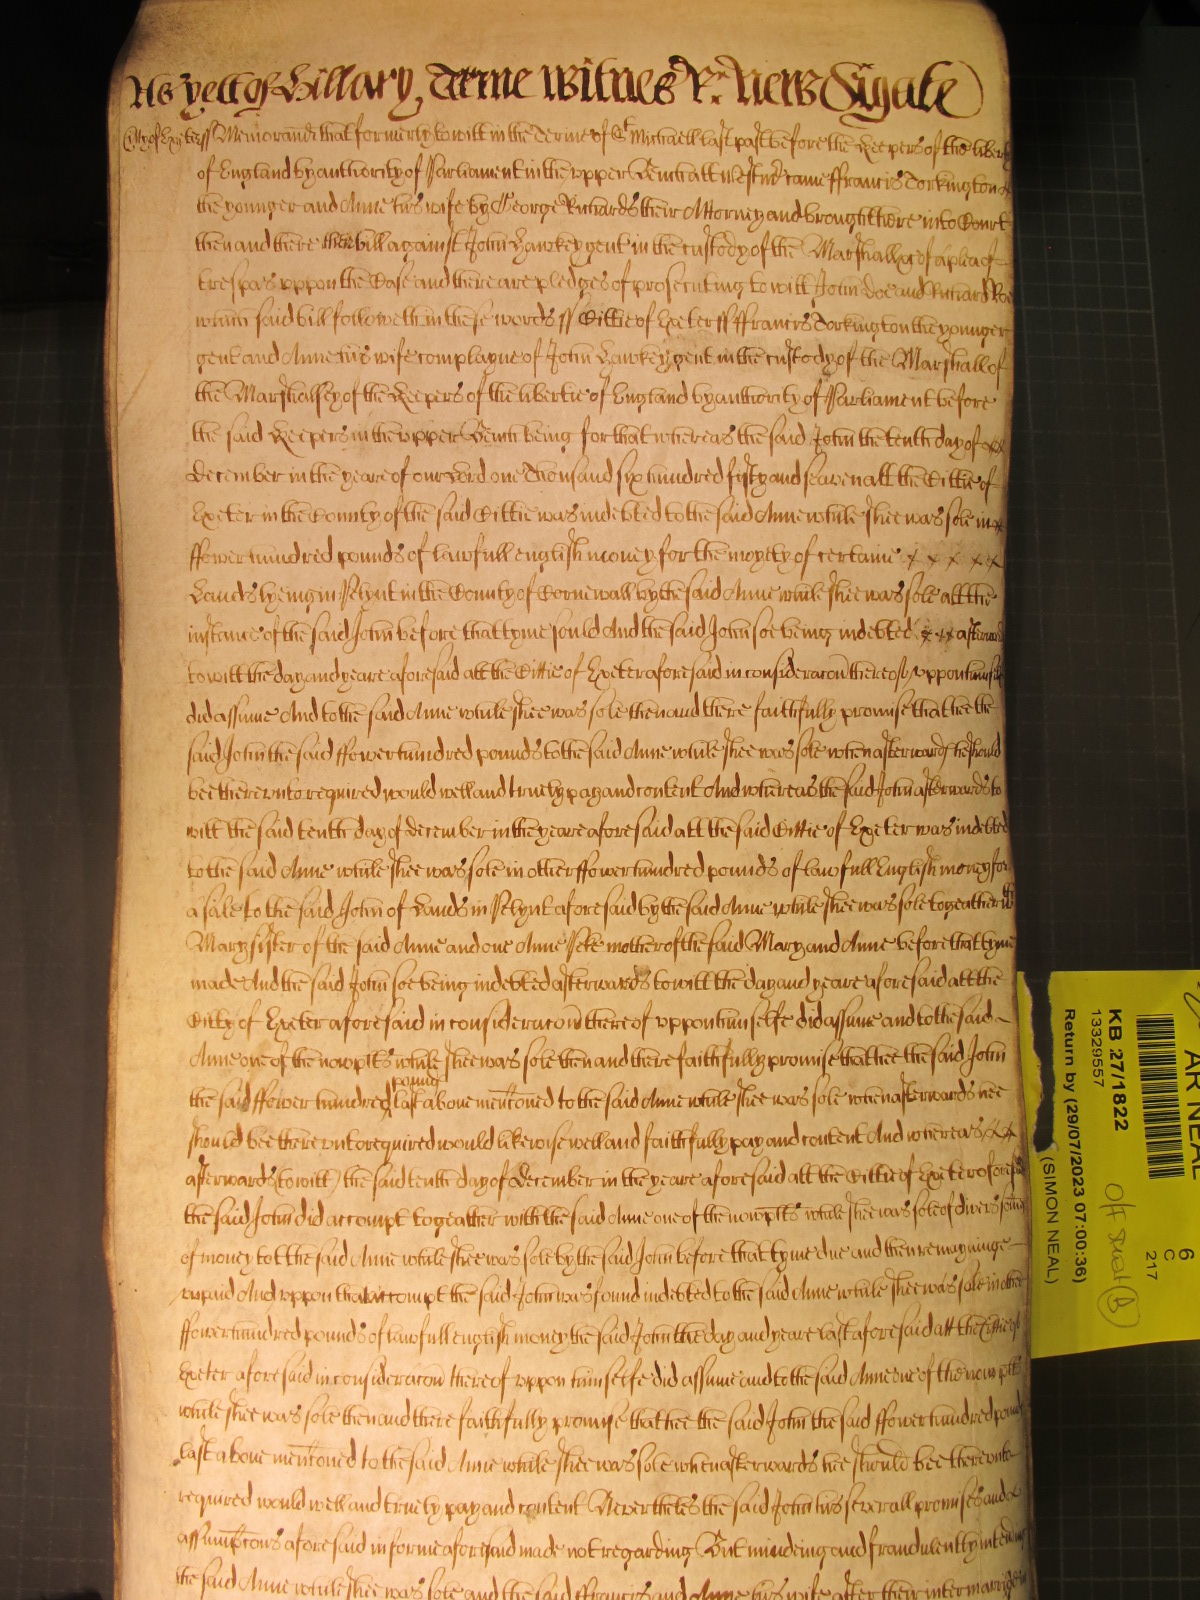 As yett of Hillary Terme Witnes R: Newdigate
City of Exeter ss Memorand that formerly to witt in the Terme of St Michaell last past before the Keepers of the libertie
of England by authority of Parliament in the upper Bench att Westmr came ffrancis Dorkington
the younger and Anne his wife by George Richards their Attorney and brought here into Court
then and there their bill against John Hawkey gent in the custody of the Marshall &c of a plea of
trespas uppon the Case and there are pledges of prosecuting to witt John Doe and Richard Roe
which said bill followeth in these words ss Cittie of Exeter ss ffrancis Dorkington the younger
gent and Anne his wife complayne of John Hawkey gent in the custody of the Marshall of
the Marshalsey of the Keepers of the libertie of England by authority of Parliament before
the said Keepers in the upper Bench being for that whereas the said John the tenth day of
December in the yeare of our Lord one Thousand six hundred fifty and seaven att the Cittie of
Exeter in the County of the said Cittie was indebted to the said Anne while shee was sole in
ffower hundred pounds of lawfull english money for the moyety of certaine
Lands lyeing in Pelynt in the County of Cornewall by the said Anne while shee was sole att the
instance of the said John before that tyme sould And the said John soe being indebted afterwards
to witt the day and yeare aforesaid att the Cittie of Exeter aforesaid in consideracon thereof uppon himselfe
did assume And to the said Anne while shee was sole then and there faithfully promise that hee the
said John the said ffower hundred pounds to the said Anne while shee was sole when afterwards he should
bee thereunto required would well and truely pay and content And whereas the said John afterwards to
witt the said tenth day of December in the yeare aforesaid att the said Cittie of Exeter was indebted
to the said Anne while shee was sole in other ffower hundred pounds of lawfull English money for
a sale to the said John of Lands in Pelynt aforesaid by the said Anne while shee was sole togeather with
Mary sister of the said Anne and one Anne Peke mother of the said Mary and Anne before that tyme
made And the said John soe being indebted afterwards to witt the day and yeare aforesaid att the
Citty of Exeter aforesaid in consideracon thereof uppon himselfe did assume and to the said
Anne one of the now plts while shee was sole then and there faithfully promise that hee the said John
pounds
the said ffower hundred last above mentioned to the said Anne while shee was sole when afterwards hee
should bee thereunto required would likewise well and faithfully pay and content And whereas
afterwards (to witt) the said tenth day of December in the yeare aforesaid att the Cittie of Exeter aforesaid
the said John did accompt togeather with the said Anne one of the now plts while shee was sole of divers somes
of money to the said Anne while shee was sole by the said John before that tyme due and then remayninge
unpaid And uppon that accompt the said John was found indebted to the said Anne while shee was sole in other
ffower hundred pounds of lawfull english money the said John the day and yeare last aforesaid att the Cittie of
Exeter aforesaid in consideracon thereof uppon himselfe did assume and to the said Anne one of the now plts
while shee was sole then and there faithfully promise that hee the said John the said ffower hundred pounds
last above mentioned to the said Anne while shee was sole when afterwards hee should bee thereunto
required would well and truely pay and content Nevertheles the said John his severall promises and
assumptcons aforesaid in forme aforesaid made not regarding But mindeing and fraudulently intending
the said Anne while shee was sole and the said ffrancis and Anne his wife after their intermarriage
AR NEAL
KB 27/1822
13329557
Return by (29/07/2023 07:00:36)
(SIMON NEAL)
6
C
217